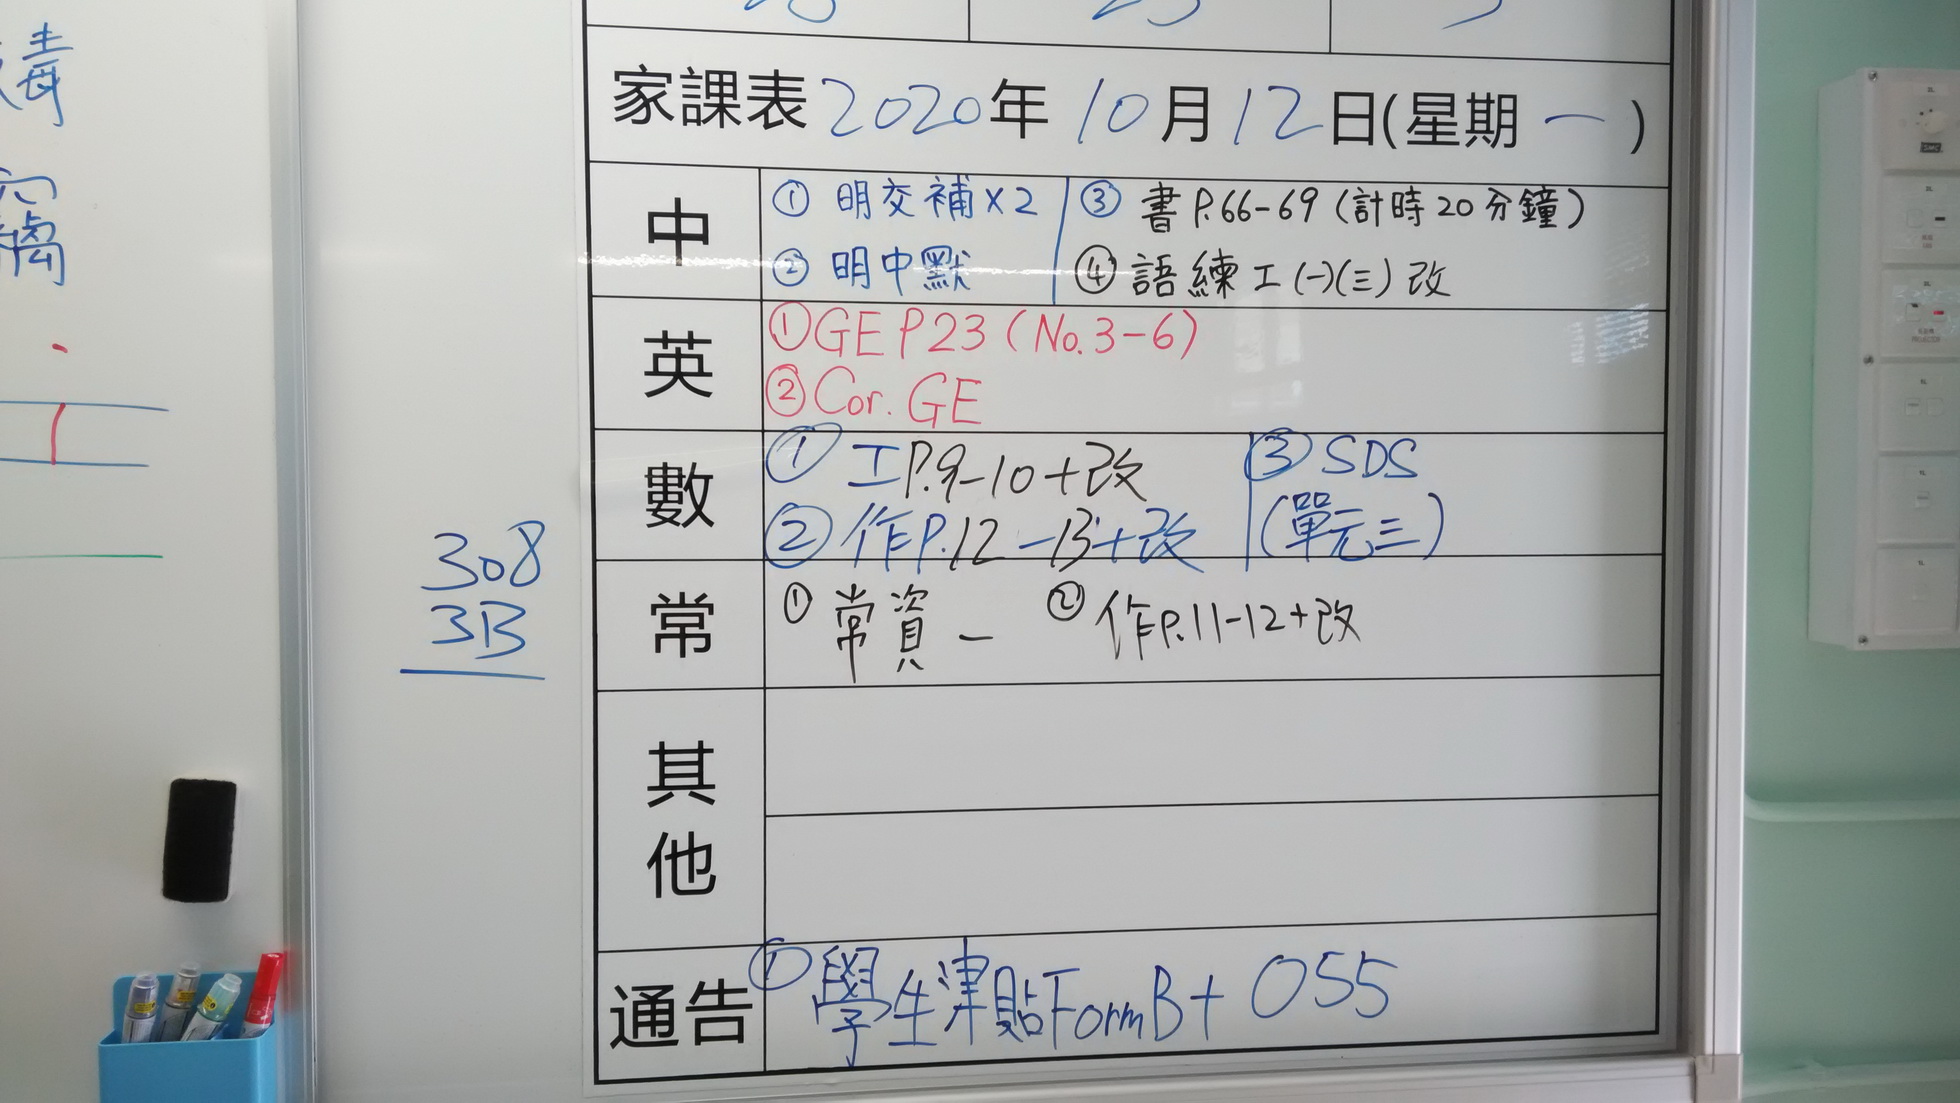 家課表 2020年 10月 12日(星期一)
中
① 明交補×2
② 明中默
③ 書P.66-69 (計時20分鐘)
④ 語練工(一)(三)改
英
① GE P23 (No.3-6)
② Cor. GE
數
① 工P.9-10+改
② 作P.12-13+改
③ SDS
(單元三)
常
① 常資一 ② 作P.11-12+改
其他
通告
① 學生津貼Form B + 055
308
3B